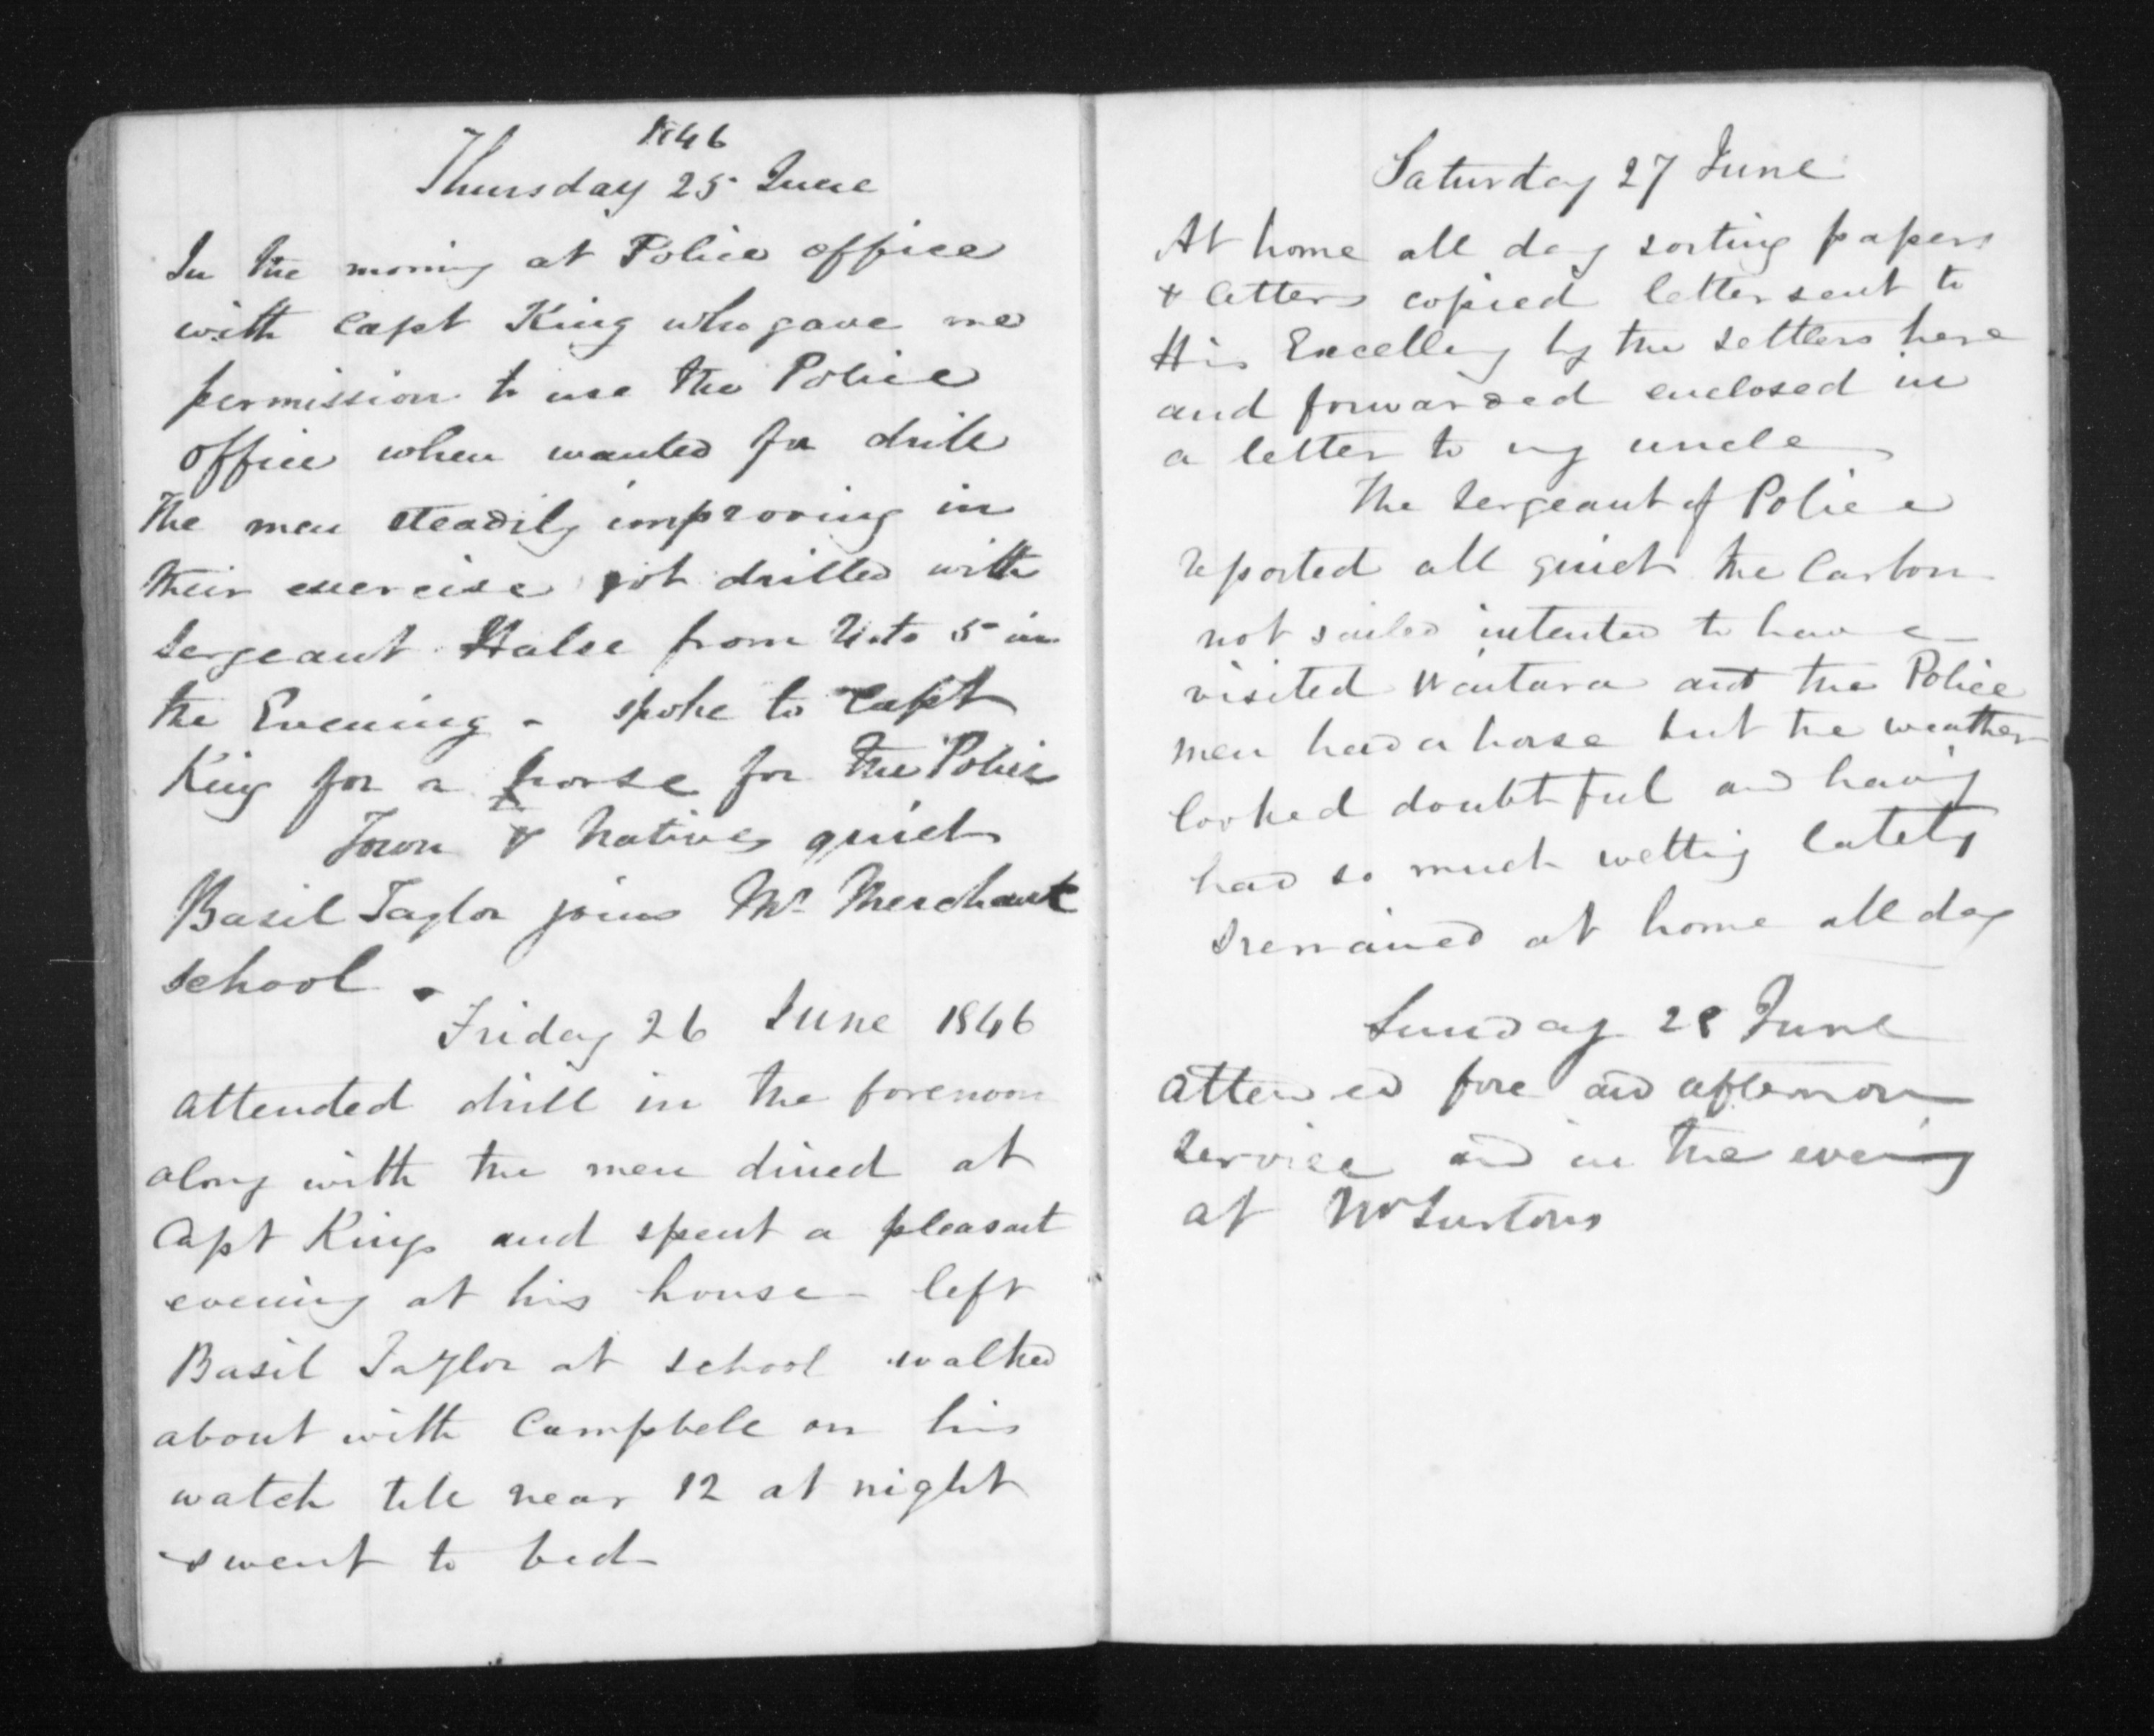 1846
Thursday 25 June
In the morning at Police office
with Capt King who gave me
permission to use the Police
office when wanted for drill
The men steadily improving in
their exercise got drilled with
Sergeant Halse from 4 to 5 in
the Evening - spoke to Capt
King for a horse for the Police
Town & Natives quiet
Basil Taylor joins Mr Merchant
school.
Friday 26 June 1846
attended drill in the forenoon
along with the men dined at
Capt Kings and spent a pleasant
evening at his house - left
Basil Taylor at school walked
about with Campbell on his
watch till near 12 at night
& went to bed
Saturday 27 June
At home all day sorting papers
& letters copied letter sent to
His Excellency by the settlers here
and forwarded enclosed in
a letter to my uncle
The Sergeant of Police
reported all quiet the Carbon
not sailed intented to have
visited Waitara and the Police
men had a horse but the weather
looked doubtful and having
had so much wetting lately
I remained at home all day
Sunday 28 June
attended fore and afternoon
service and in the evening
at Mr